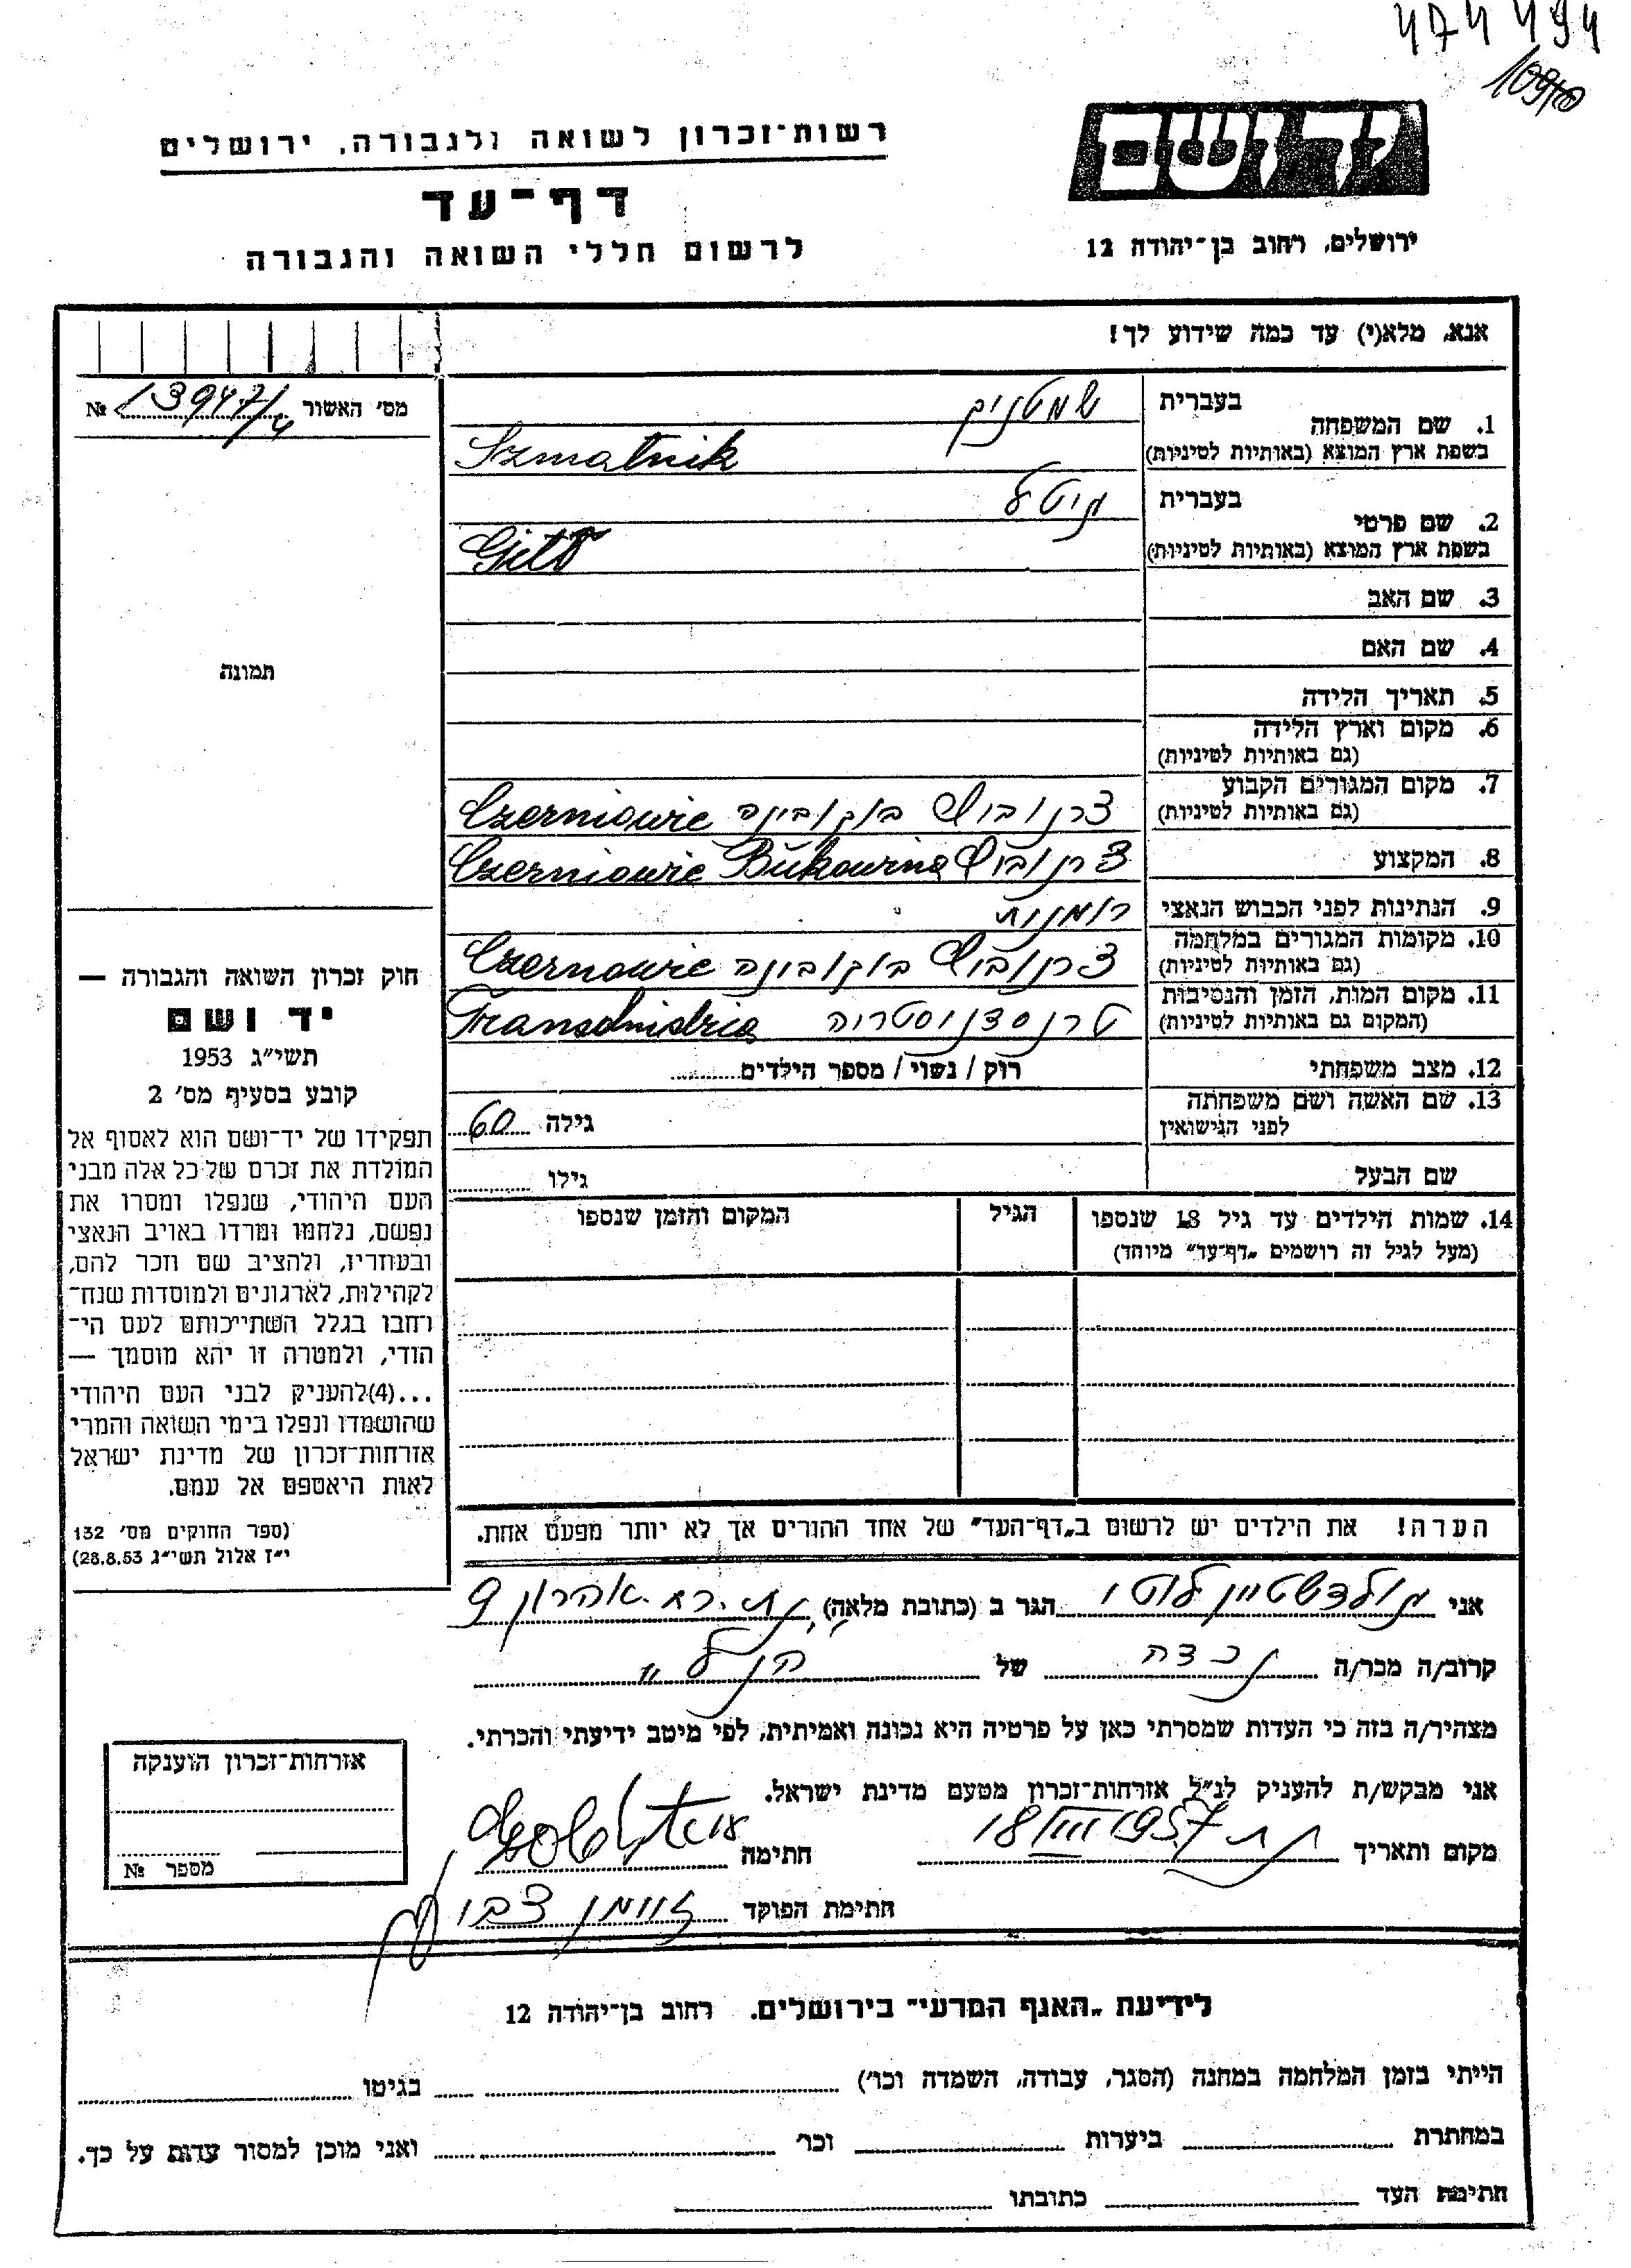 474494
רשות־זכרון לשואה ולגבורה, ירושלים
דף־עד
לרשום חללי השואה והגבורה
יד ושם
ירושלים, רחוב בן־יהודה 12
אנא, מלא(י) עד כמה שידוע לך!
מס׳ האשור 13947/4 №
1. שם המשפחה
בעברית שמטניק
בשפת ארץ המוצא (באותיות לטיניות) Szmatnik
2. שם פרטי
בעברית גיטל
בשפת ארץ המוצא (באותיות לטיניות)
3. שם האב
4. שם האם
5. תאריך הלידה
6. מקום וארץ הלידה
(גם באותיות לטיניות)
7. מקום המגורים הקבוע
(גם באותיות לטיניות)
צרנוביץ בוקובינה Czerniowie
8. המקצוע
צרנוביץ Czerniowie Bukowina
9. הנתינות לפני הכבוש הנאצי
10. מקומות המגורים במלחמה
(גם באותיות לטיניות)
צרנוביץ בוקובינה Czernowie
11. מקום המות, הזמן והנסיבות
(המקום גם באותיות לטיניות)
טרנסדניסטריה Transdnistria
12. מצב משפחתי
רווק / נשוי / מספר הילדים
13. שם האשה ושם משפחתה
לפני הנישואין
גילה 60
שם הבעל
גילו
14. שמות הילדים עד גיל 18 שנספו
(מעל לגיל זה רושמים „דף־עד" מיוחד)
הגיל
המקום והזמן שנספו
הערה! את הילדים יש לרשום ב„דף־העד" של אחד ההורים אך לא יותר מפעם אחת.
תמונה
חוק זכרון השואה והגבורה —
יד ושם
תשי״ג 1953
קובע בסעיף מס׳ 2
תפקידו של יד־ושם הוא לאסוף אל
המולדת את זכרם של כל אלה מבני
העם היהודי, שנפלו ומסרו את
נפשם, נלחמו ומרדו באויב הנאצי
ובעוזריו, ולהציב שם וזכר להם,
לקהילות, לארגונים ולמוסדות שנח־
רבו בגלל השתייכותם לעם הי־
הודי, ולמטרה זו יהא מוסמך —
...(4)להעניק לבני העם היהודי
שהושמדו ונפלו בימי השואה והמרי
אזרחות־זכרון של מדינת ישראל
לאות היאספם אל עמם.
(ספר החוקים מס׳ 132
י״ז אלול תשי״ג 28.8.53)
אני גולדשטיין לוטי הגר ב (כתובת מלאה) אהרון 9
קרוב/ה מכר/ה נכדה של הנ״ל
מצהיר/ה בזה כי העדות שמסרתי כאן על פרטיה היא נכונה ואמיתית, לפי מיטב ידיעתי והכרתי.
אני מבקש/ת להעניק לנ״ל אזרחות־זכרון מטעם מדינת ישראל.
מקום ותאריך 18/III 1957 חתימה
חתימת הפוקד זוימן צבי
אזרחות־זכרון הוענקה
מספר №
לידיעת „האגף המדעי" בירושלים. רחוב בן־יהודה 12
הייתי בזמן המלחמה במחנה (הסגר, עבודה, השמדה וכו׳) בגיטו
במחתרת ביערות וכו׳ ואני מוכן למסור עדות על כך.
חתימת העד כתובתו